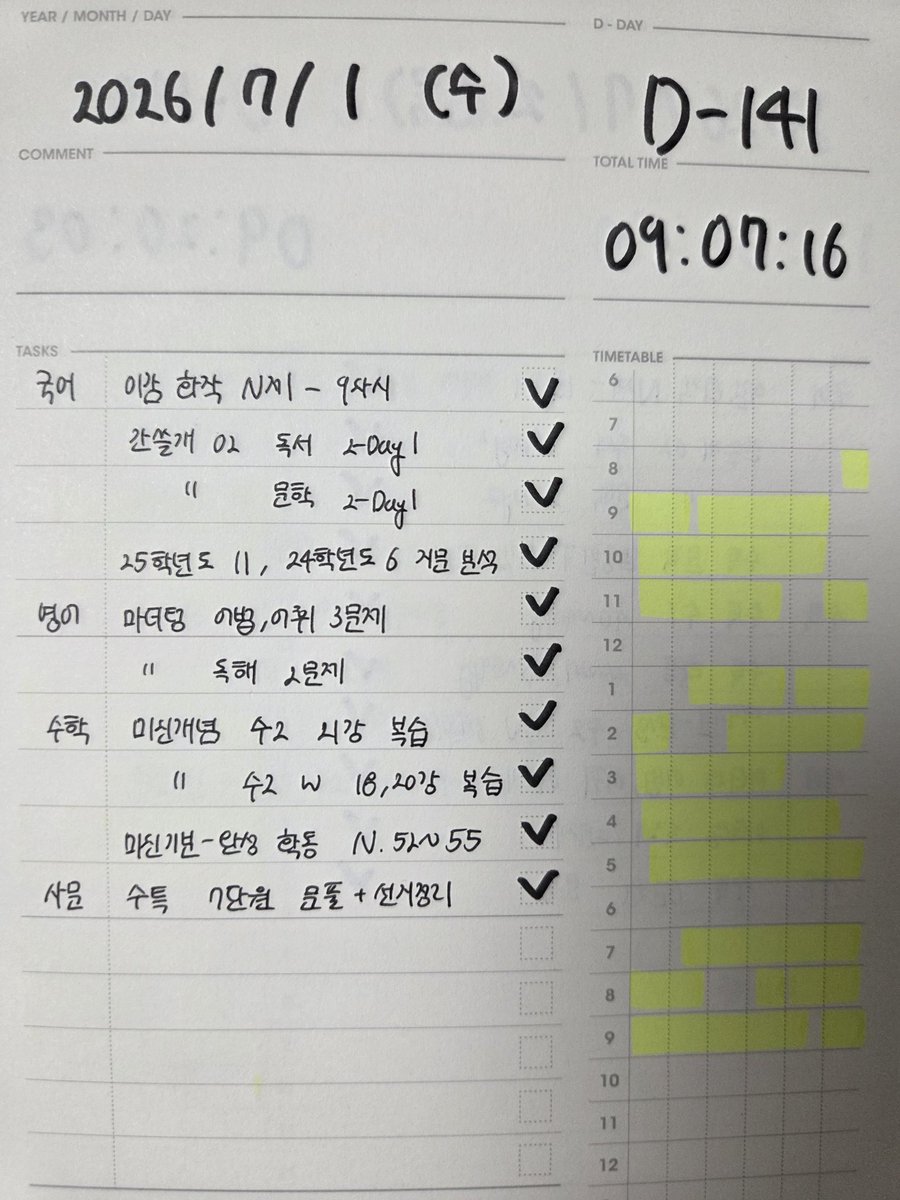 YEAR / MONTH / DAY
2026/7/1 (수)
D - DAY
D-141
COMMENT
TOTAL TIME
09:07:16
TASKS
국어 이감 화작 N제1 - 9회시
간쓸개 02 독서 2-Day1
" 문학 2-Day1
25학년도 11, 24학년도 6 지문 분석
영어 마더텅 어법,어휘 3문제
" 독해 2문제
수학 미친개념 수2 시강 복습
" 수2 W 18,20강 복습
미친기분-완성 학통 N.52~55
사문 수특 7단원 문풀+선지정리
TIMETABLE
6
7
8
9
10
11
12
1
2
3
4
5
6
7
8
9
10
11
12